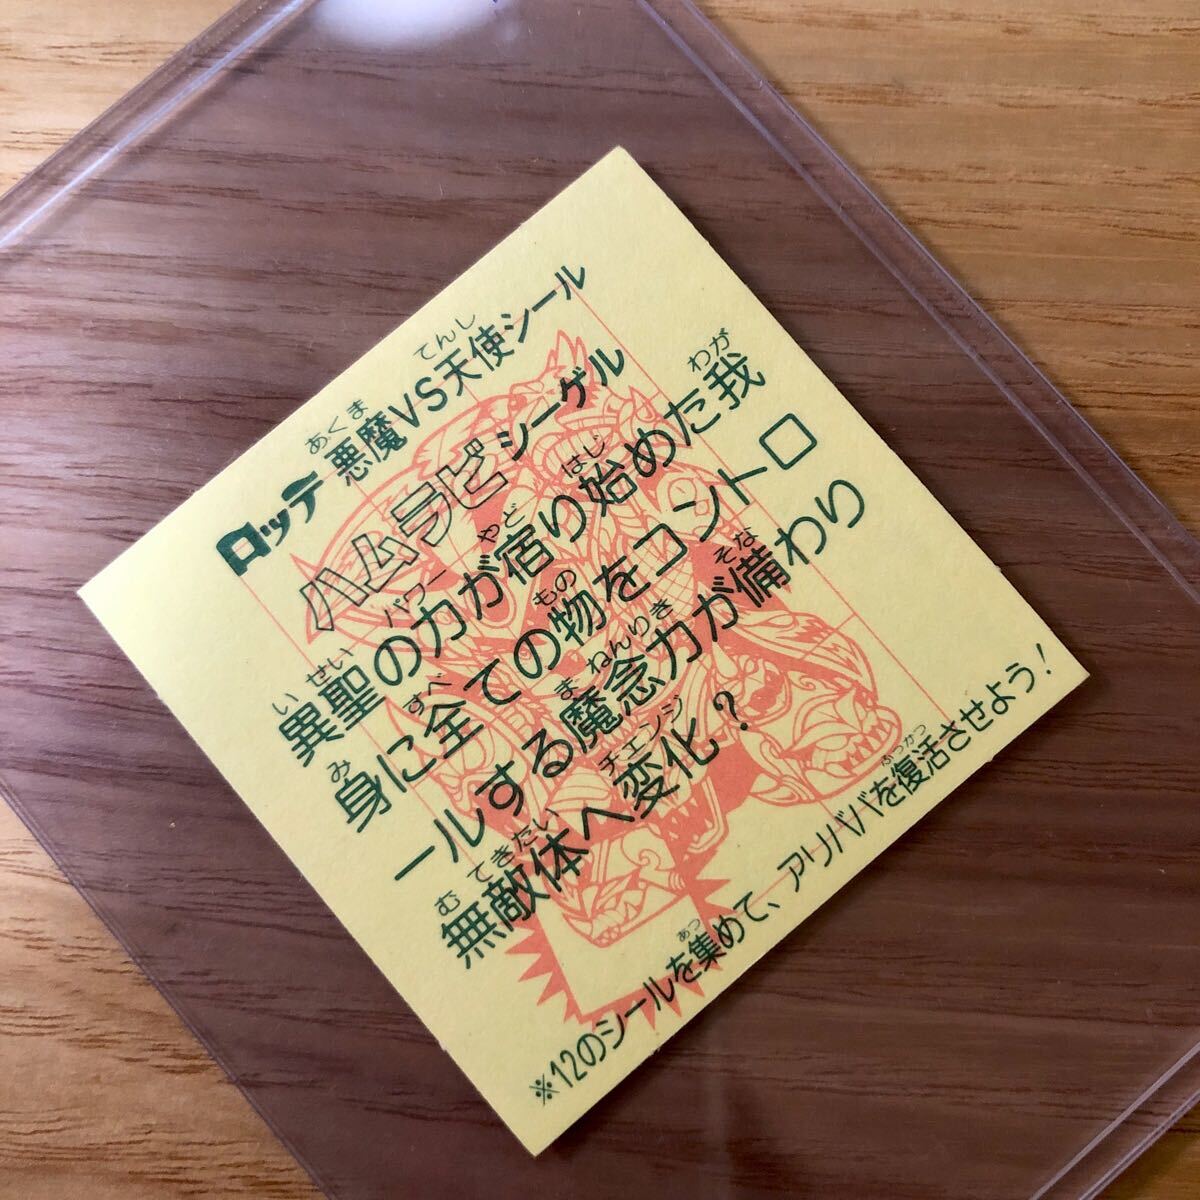 ロッテ 悪魔VS天使シール
あくま てんし
ハムラビシーゲル
異聖の力が宿り始めた我
いせい パワー やど はじ わが
身に全ての物をコントロ
み すべ もの
ールする魔念力が備わり
まねんりき そな
無敵体へ変化?
むてきたい チェンジ
※12のシールを集めて、アリババを復活させよう!
あつ ふっかつ